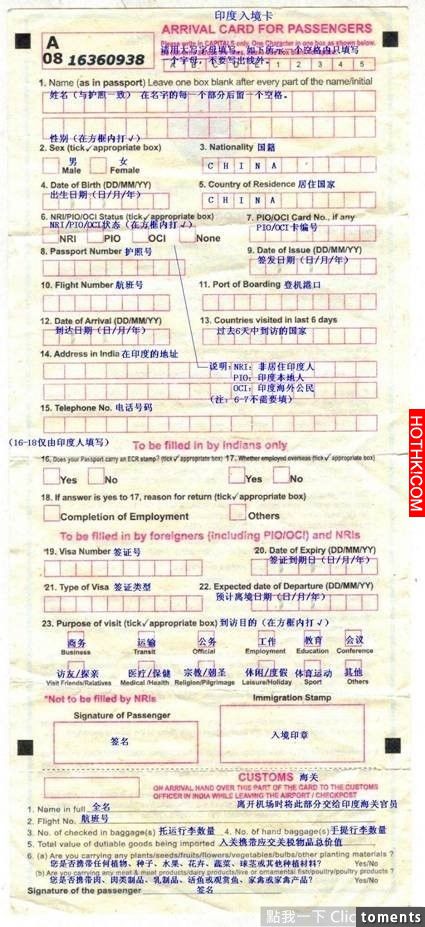 印度入境卡
ARRIVAL CARD FOR PASSENGERS
Please write in CAPITALS only. One Character in one box as shown below.
请用大写字母填写。如下所示，一个空格内只填写
一个字母，不要写出线外。
A
08 16360938
A B C D E 1 2 3 4 5
1. Name (as in passport) Leave one box blank after every part of the name/initial
姓名（与护照一致） 在名字的每一个部分后留一个空格。
性别（在方框内打√）
2. Sex (tick✓appropriate box) 3. Nationality 国籍
男 女 C H I N A
Male Female
4. Date of Birth (DD/MM/YY) 5. Country of Residence 居住国家
出生日期（日/月/年） C H I N A
6. NRI/PIO/OCI Status (tick✓appropriate box) 7. PIO/OCI Card No., if any
NRI/PIO/OCI状态（在方框内打√） PIO/OCI卡编号
NRI PIO OCI None
8. Passport Number 护照号 9. Date of Issue (DD/MM/YY)
签发日期（日/月/年）
10. Flight Number 航班号 11. Port of Boarding 登机港口
12. Date of Arrival (DD/MM/YY) 13. Countries visited in last 6 days
到达日期（日/月/年） 过去6天中到访的国家
14. Address in India 在印度的地址
说明：NRI：非居住印度人
PIO：印度本地人
OCI：印度海外公民
（注：6-7不需要填）
15. Telephone No. 电话号码
（16-18仅由印度人填写） To be filled in by Indians only
16. Does your Passport carry an ECR stamp? (tick✓appropriate box) 17. Whether employed overseas (tick✓appropriate box)
Yes No Yes No
18. If answer is yes to 17, reason for return (tick✓appropriate box)
Completion of Employment Others
To be filled in by foreigners (including PIO/OCI) and NRIs
*19. Visa Number 签证号 20. Date of Expiry (DD/MM/YY)
签证到期日（日/月/年）
*21. Type of Visa 签证类型 22. Expected date of Departure (DD/MM/YY)
预计离境日期（日/月/年）
23. Purpose of visit (tick✓appropriate box) 到访目的（在方框内打√）
商务 运输 公务 工作 教育 会议
Business Transit Official Employment Education Conference
访友/探亲 医疗/保健 宗教/朝圣 休闲/度假 体育运动 其他
Visit Friends/Relatives Medical /Health Religion/Pilgrimage Leisure/Holiday Sport Others
*Not to be filled by NRIs Immigration Stamp
Signature of Passenger
签名 入境印章
CUSTOMS 海关
ON ARRIVAL HAND OVER THIS PART OF THE CARD TO THE CUSTOMS
OFFICER IN INDIA WHILE LEAVING THE AIRPORT / CHECKPOST
离开机场时将此部分交给印度海关官员
1. Name in full 全名
2. Flight No. 航班号
3. No. of checked in baggage(s) 托运行李数量 4. No. of hand baggage(s) 手提行李数量
5. Total value of dutiable goods being imported 入关携带应交关税物品总价值
6. (a) Are you carrying any plants/seeds/fruits/flowers/vegetables/bulbs/other planting materials ?
您是否携带任何植物、种子、水果、花卉、蔬菜、球茎或其他种植材料？ Yes/No
(b) Are you carrying any meat & meat products/dairy products/live or ornamental fish/poultry/poultry products ?
您是否携带肉、肉类制品、乳制品、活鱼或观赏鱼、家禽或家禽产品？ Yes/No
Signature of the passenger
签名
HOTHK!COM
點我一下 Clic
toments